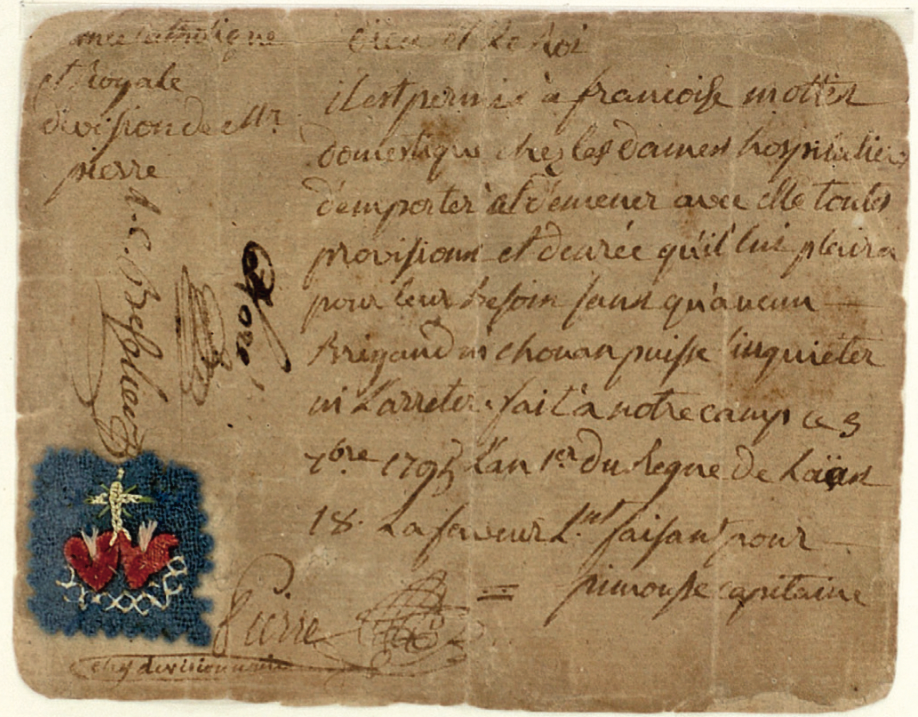 mée catholique
et Royale
division de Mr
pierre
Dieu et Le Roi
il est permis à francoise mottes
domestique chez les Dames hospitalier
d'emporter et d'emener avec elle toutes
provisions et denrée qu'il lui plaira
pour leur Besoin sans qu'aucun
Brigand ni chouan puisse inquieter
ni L'arreter. fait a notre camp ce 3
7bre 1795 L'an 1er du Regne de Loüis
18. La faveur Lnt faisant pour
pimousse capitaine
Pierre
chef divisionnaire